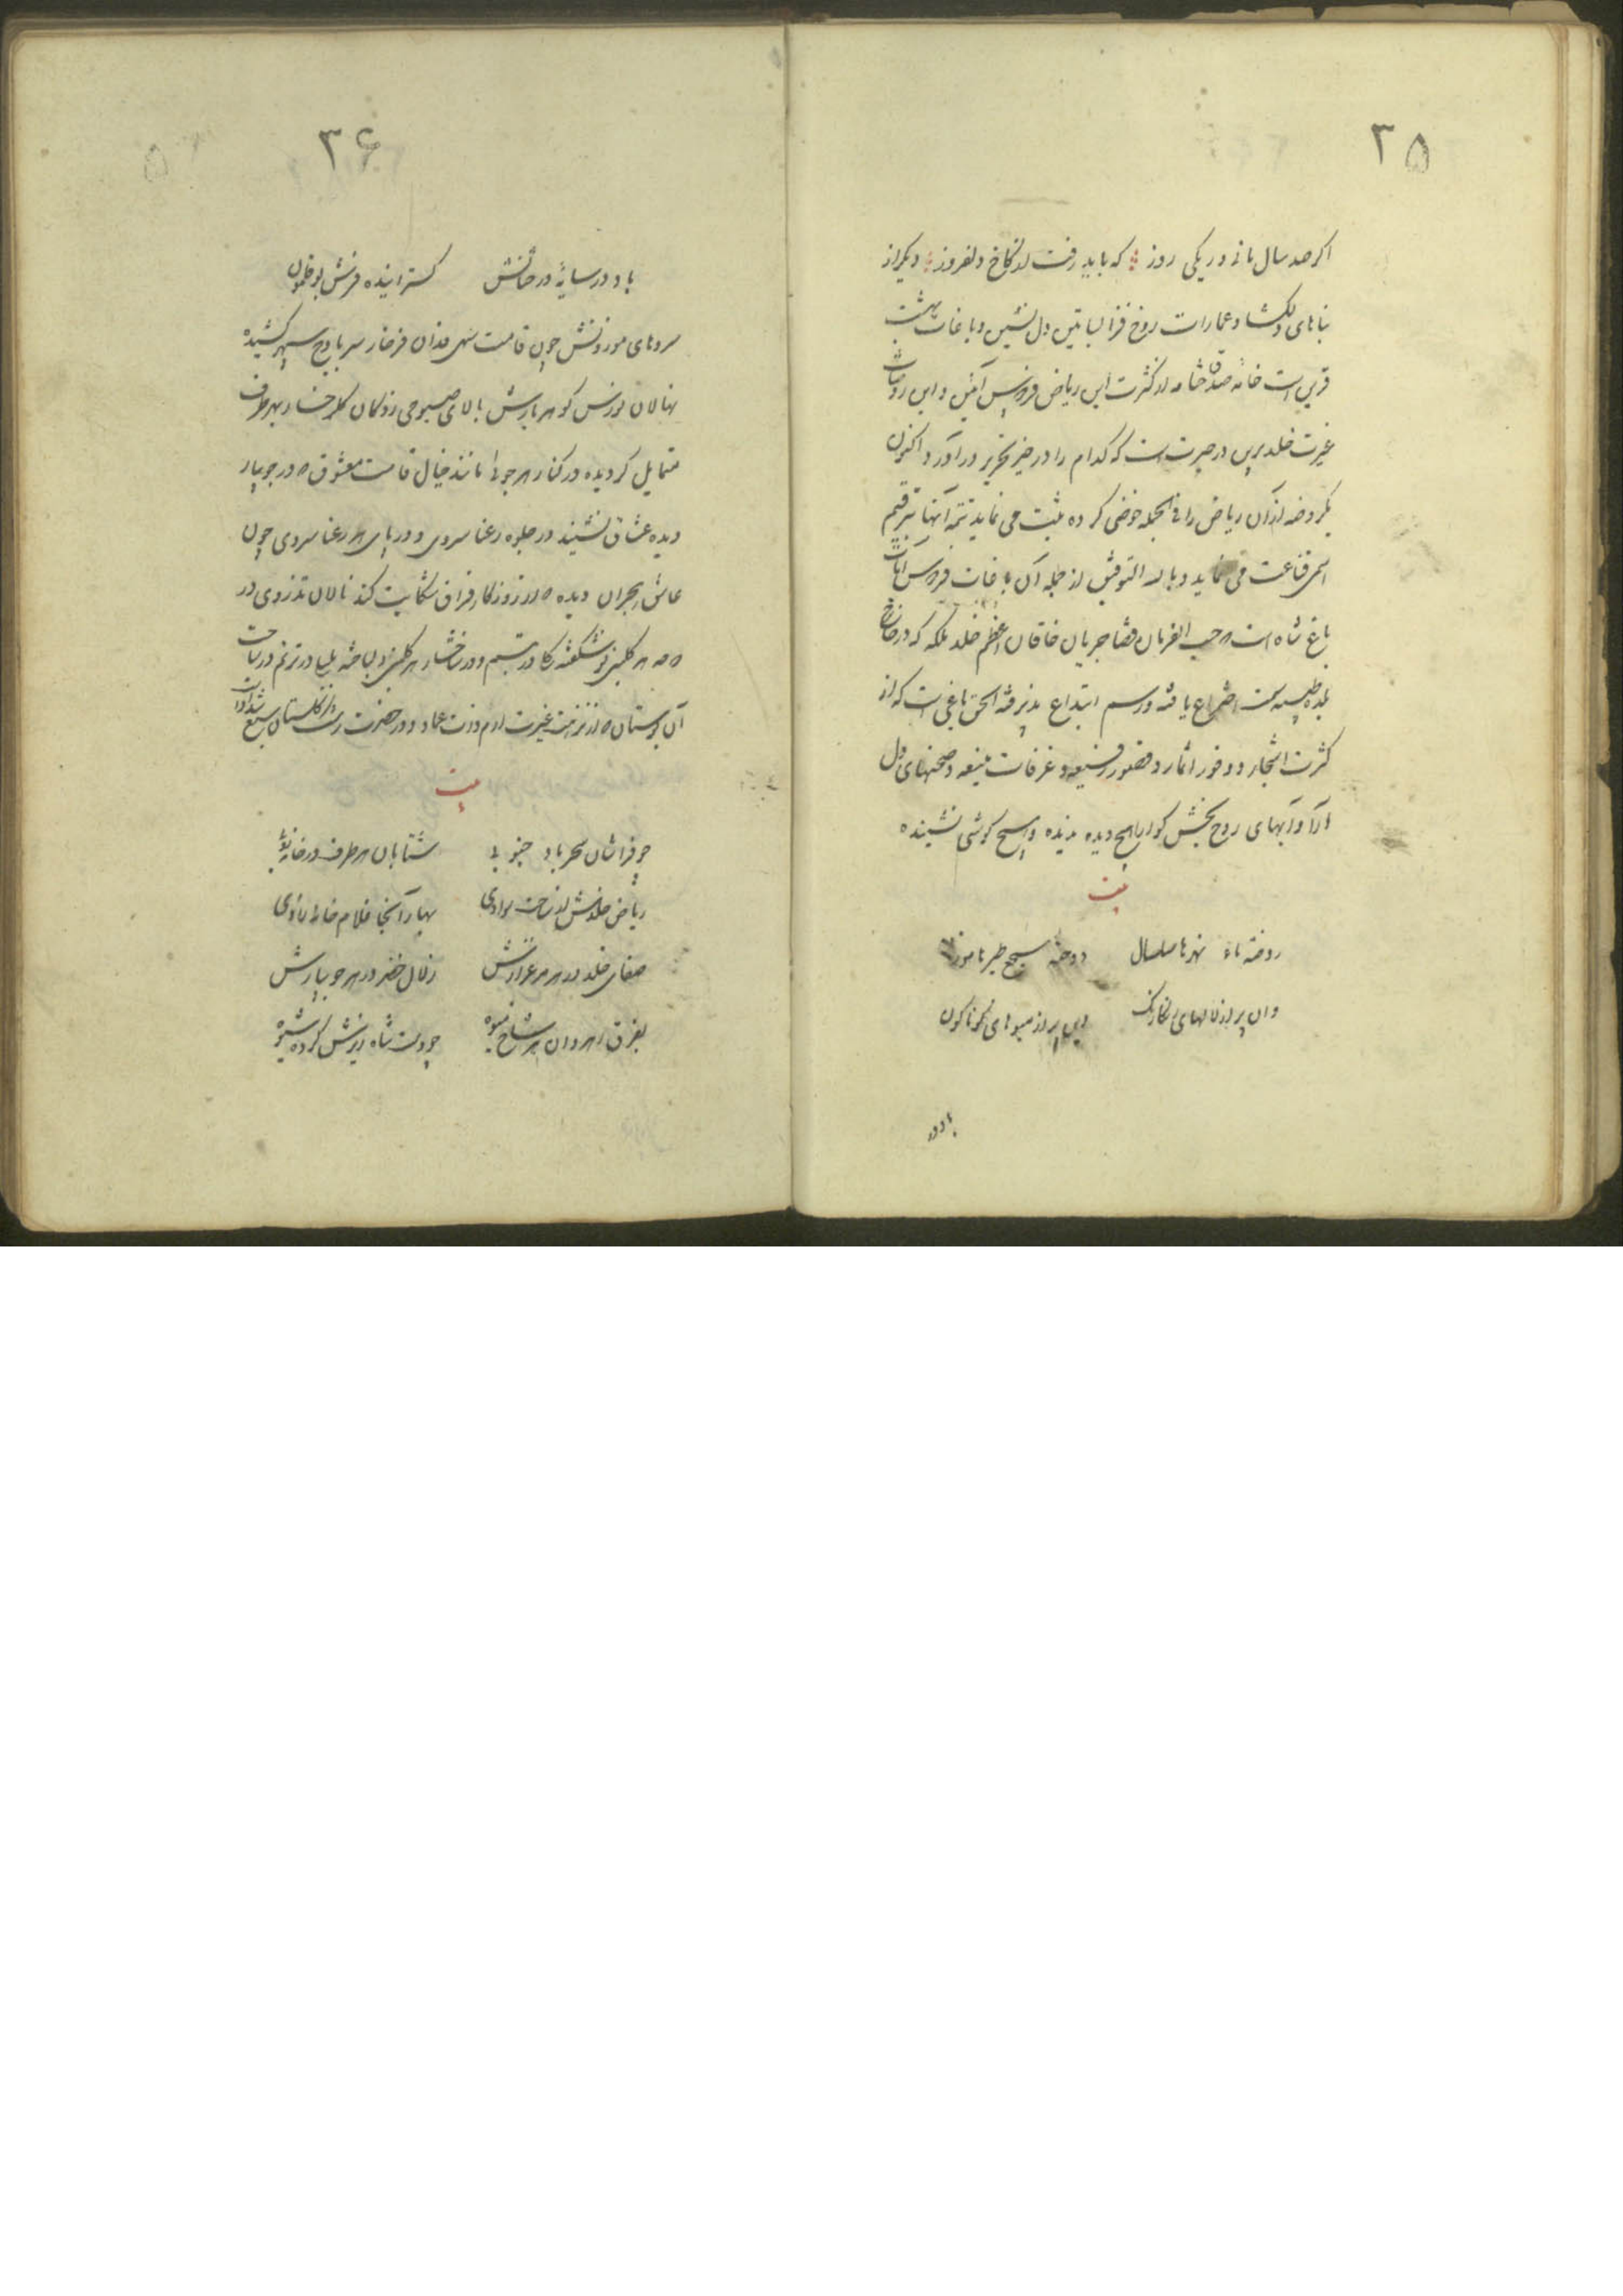 ۳۵
اکر صد سال مانی ور یکی روز که باید رفت از کاخ دلفروز دیکر از
بناهای دلکشا و عمارات روح فزا بساتین دل نشین و باغات بهشت
قرین است خامه از کثرت این ریاض فردوس آئین و این روضات
غیرت خلد برین در حیرت است که کدام را در حیز تحریر در آورد اکنون
یکروضه از آن ریاض را فی الجمله کرده ثبت می نماید تتمه آنها بترقیم
اسمی قناعت می نماید و بالله التوفیق از جمله آن باغات فردوس آیات
باغ شاه است که حسب الفرمان قضا جریان خاقان اعظم خلد ملکه که در خارج
بلده طیبه سمت اختراع یافته و رسم ابتداع پذیرفته الحق باغی است که از
کثرت اشجار و وفور اثمار و قصور رفیعه و غرفات منیعه و صحنهای دل
آرا و آبهای روح بخش کوارا هیچ دیده ندیده و هیچ کوشی نشنیده
بیت
روضة ماء نهرها سلسال دوحة سجع طیرها موزون
وان پر از لالهای رنکارنک این پر از میوهای کوناکون
باد در
۳۶
باد در سایهٔ درختانش کسترانیده فرش بوقلمون
سروهای موزونش چون قامت سهی قدان فرخار سر باوج سپهر کشیده
نهالان نورس کوهر بارش بالای صبوحی زدکان کلرخسار بهر طرف
متمایل کردیده در کنار هر جوئی مانند خیال قامت معشوق که در جویبار
دیده عشاق نشیند در جلوه رعنا سروی و در پای هر رعنا سروی چون
عاشق هجران دیده که از روزکار فراق شکایت کند نالان تذروی در
هر کلبنی نو شکفته کل در تبسم و در شاخسار هر کلبنی دلباخته بلبل در ترنم در ساحت
آن بوستان که از نزهت غیرت ارم ذات عماد و در خضرت رشک کلستان سبع شداد است
بیت
چو فراشان سحر باد جنوبی شتابان هر طرف در
ریاض خلدش از بهار آنجا غلام خانه زادی
صفای خلد در هر مرغزارش زلال خضر در هر جویبارش
بفرق رهروان هر شاخ میوه چو دست شاه ریزش کرده شیوه